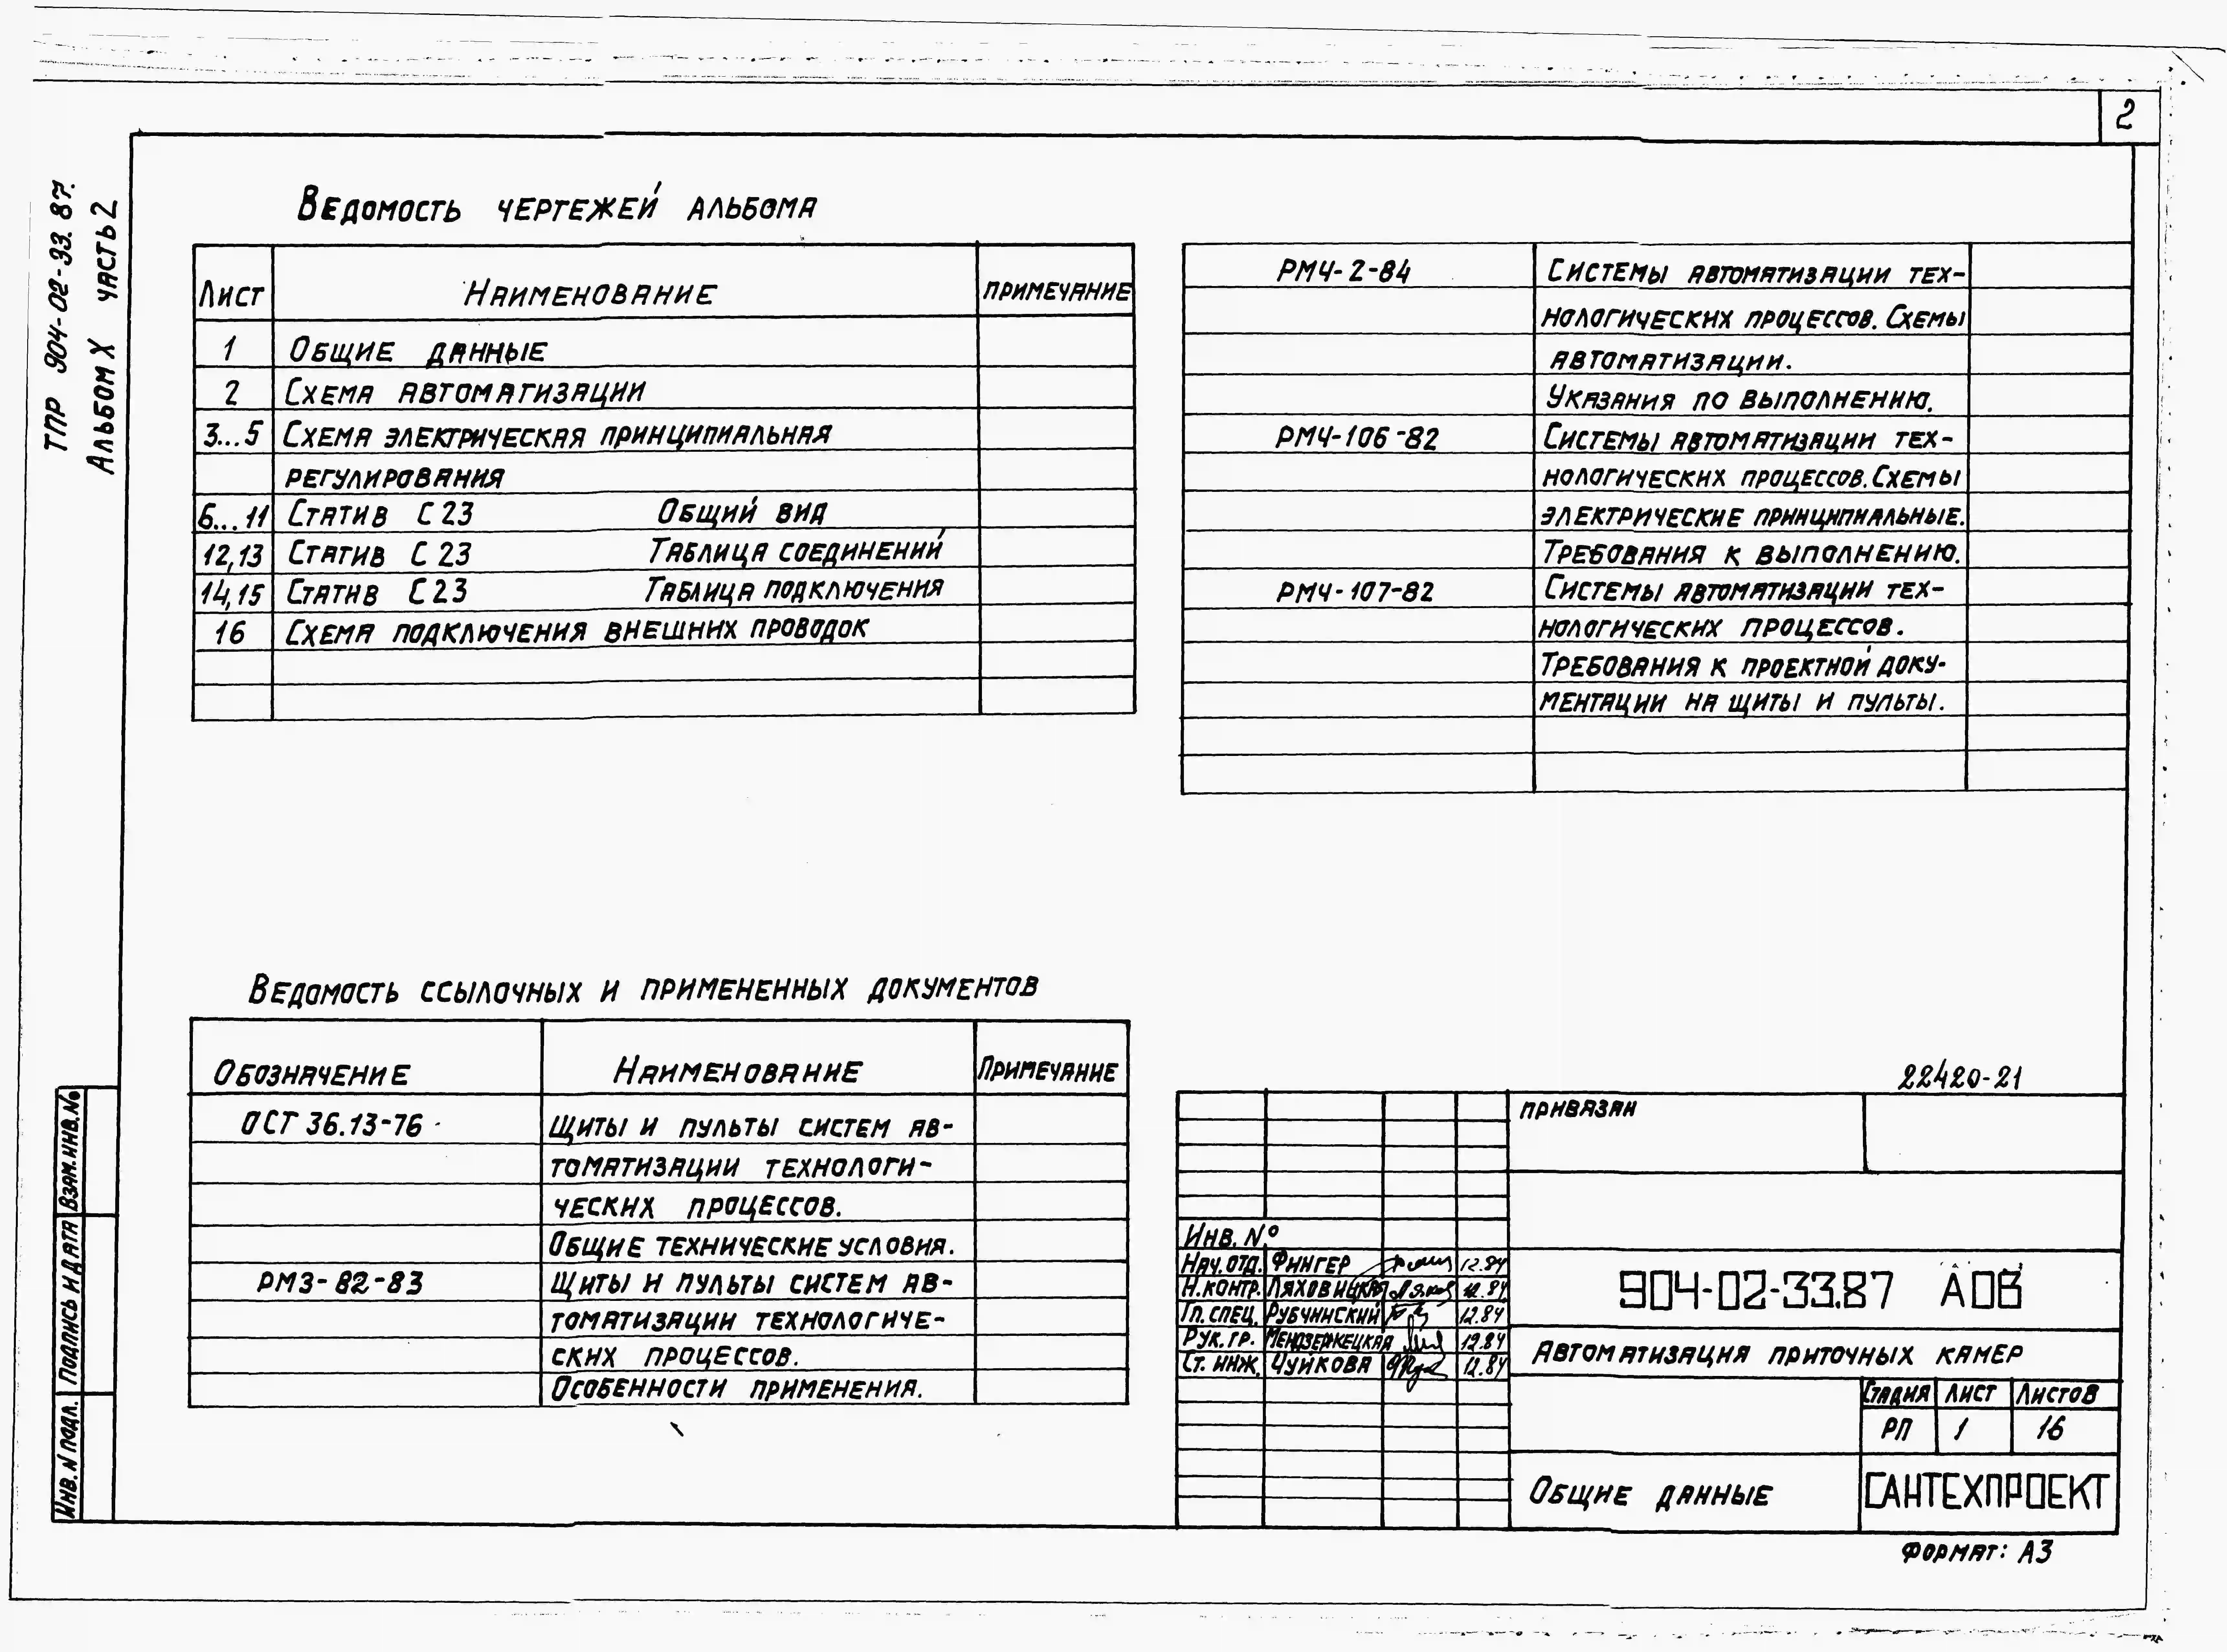 2
ТПР 904-02-33.87.
Альбом X часть 2
Ведомость чертежей альбома
Лист Наименование примечание
1 Общие данные
2 Схема автоматизации
3...5 Схема электрическая принципиальная
регулирования
6...11 Статив С23 Общий вид
12,13 Статив С23 Таблица соединений
14,15 Статив С23 Таблица подключения
16 Схема подключения внешних проводок
РМ4-2-84 Системы автоматизации тех-
нологических процессов. Схемы
автоматизации.
Указания по выполнению.
РМ4-106-82 Системы автоматизации тех-
нологических процессов. Схемы
электрические принципиальные.
Требования к выполнению.
РМ4-107-82 Системы автоматизации тех-
нологических процессов.
Требования к проектной доку-
ментации на щиты и пульты.
Ведомость ссылочных и примененных документов
Обозначение Наименование Примечание
ОСТ 36.13-76 Щиты и пульты систем ав-
томатизации технологи-
ческих процессов.
Общие технические условия.
РМ3-82-83 Щиты и пульты систем ав-
томатизации технологиче-
ских процессов.
Особенности применения.
22420-21
привязан
Инв. №
Нач. отд. Фингер 12.84
Н. контр. Ляховицкая 12.84
Гл. спец. Рубчинский 12.84
Рук. гр. Мендзержецкая 12.84
Ст. инж. Чуйкова 12.84
904-02-33.87 АОВ
Автоматизация приточных камер
Стадия Лист Листов
РП 1 16
Общие данные
САНТЕХПРОЕКТ
Формат: А3
Инв. N подл. Подпись и дата Взам. инв. №